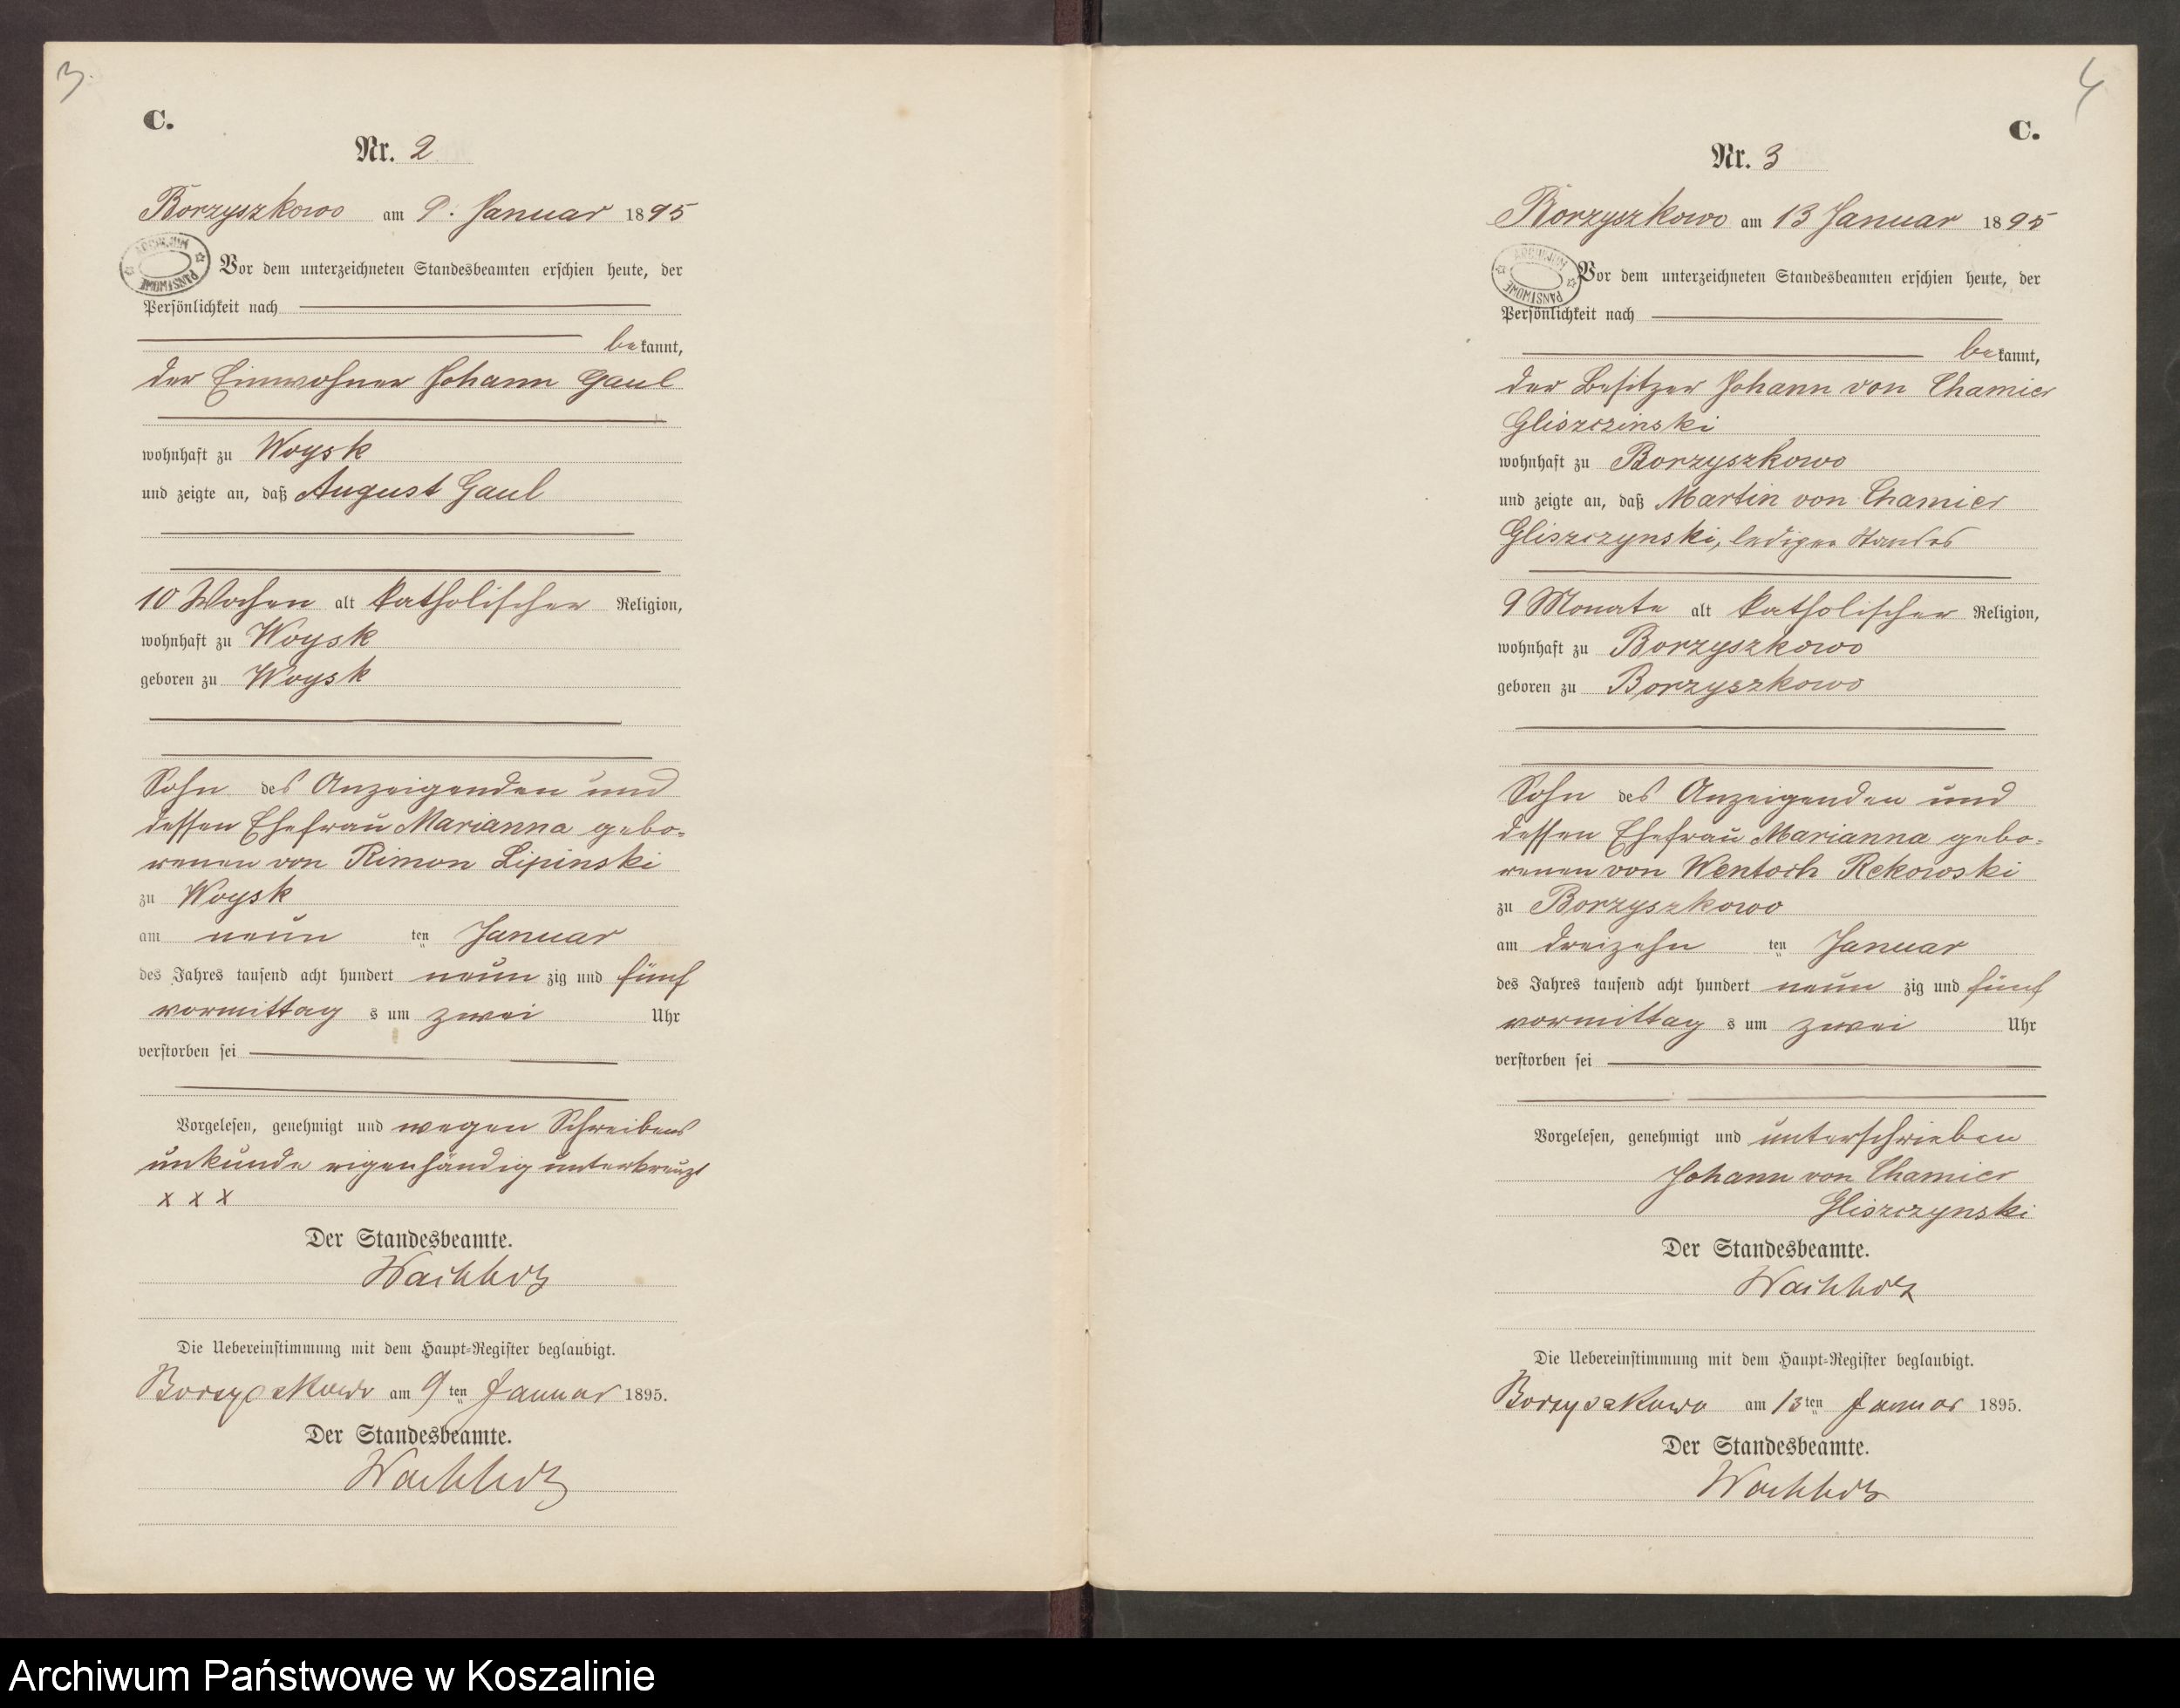 3.
C.
Nr. 2
Borzyszkowo am 9. Januar 1895
ARCHIWUM PAŃSTWOWE
Vor dem unterzeichneten Standesbeamten erschien heute, der
Persönlichkeit nach
bekannt,
der Einwohner Johann Gaul
wohnhaft zu Woysk
und zeigte an, daß August Gaul
10 Wochen alt katholischer Religion,
wohnhaft zu Woysk
geboren zu Woysk
Sohn des Anzeigenden und
dessen Ehefrau Marianna gebo-
renen von Rimon Lipinski
zu Woysk
am neun ten Januar
des Jahres tausend acht hundert neun zig und fünf
vormittag s um zwei Uhr
verstorben sei
Vorgelesen, genehmigt und wegen Schreibens
unkunde eigenhändig unterkreuzt
x x x
Der Standesbeamte.
Wachholz
Die Uebereinstimmung mit dem Haupt-Register beglaubigt.
Borzyszkowo am 9 ten Januar 1895.
Der Standesbeamte.
Wachholz
4
C.
Nr. 3
Borzyszkowo am 13 Januar 1895
ARCHIWUM PAŃSTWOWE
Vor dem unterzeichneten Standesbeamten erschien heute, der
Persönlichkeit nach
bekannt,
der Besitzer Johann von Chamier
Gliszczinski
wohnhaft zu Borzyszkowo
und zeigte an, daß Martin von Chamier
Gliszczynski, ledigen Standes
9 Monate alt katholischer Religion,
wohnhaft zu Borzyszkowo
geboren zu Borzyszkowo
Sohn des Anzeigenden und
dessen Ehefrau Marianna gebo-
renen von Wentoch Rekowski
zu Borzyszkowo
am dreizehn ten Januar
des Jahres tausend acht hundert neun zig und fünf
vormittag s um zwei Uhr
verstorben sei
Vorgelesen, genehmigt und unterschrieben
Johann von Chamier
Gliszczynski
Der Standesbeamte.
Wachholz
Die Uebereinstimmung mit dem Haupt-Register beglaubigt.
Borzyszkowo am 13 ten Januar 1895.
Der Standesbeamte.
Wachholz
Archiwum Państwowe w Koszalinie